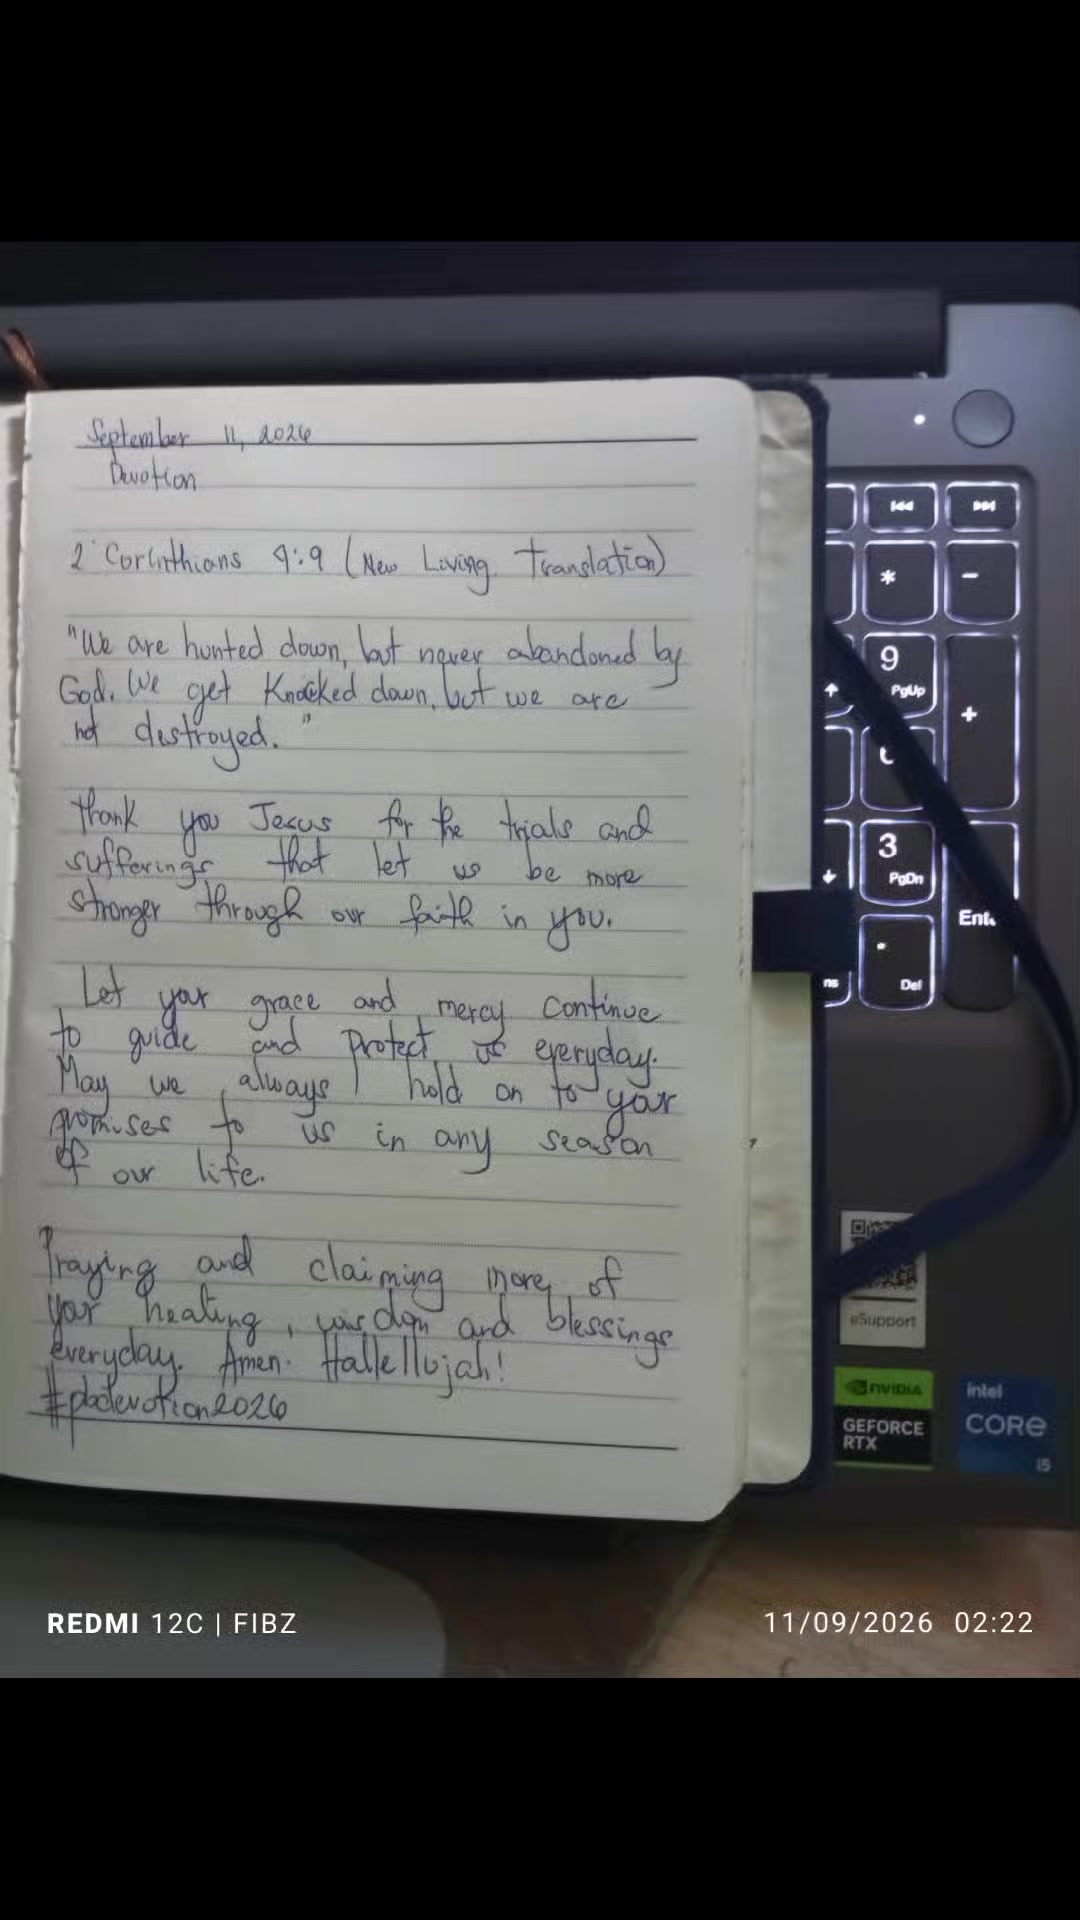 September 11, 2026
Devotion
2 Corinthians 4:9 (New Living Translation)
"We are hunted down, but never abandoned by
God. We get Knocked down, but we are
not destroyed."
Thank you Jesus for the trials and
sufferings that let us be more
stronger through our faith in you.
Let your grace and mercy continue
to guide and protect us everyday.
May we always hold on to your
promises to us in any season
of our life.
Praying and claiming more of
your healing, wisdom and blessings
everyday. Amen. Hallellujah!
#pbdevotion2026
*
-
9
PgUp
+
3
PgDn
Ent
.
Del
ns
eSupport
NVIDIA
GEFORCE
RTX
intel
CORe
i5
REDMI 12C | FIBZ
11/09/2026 02:22